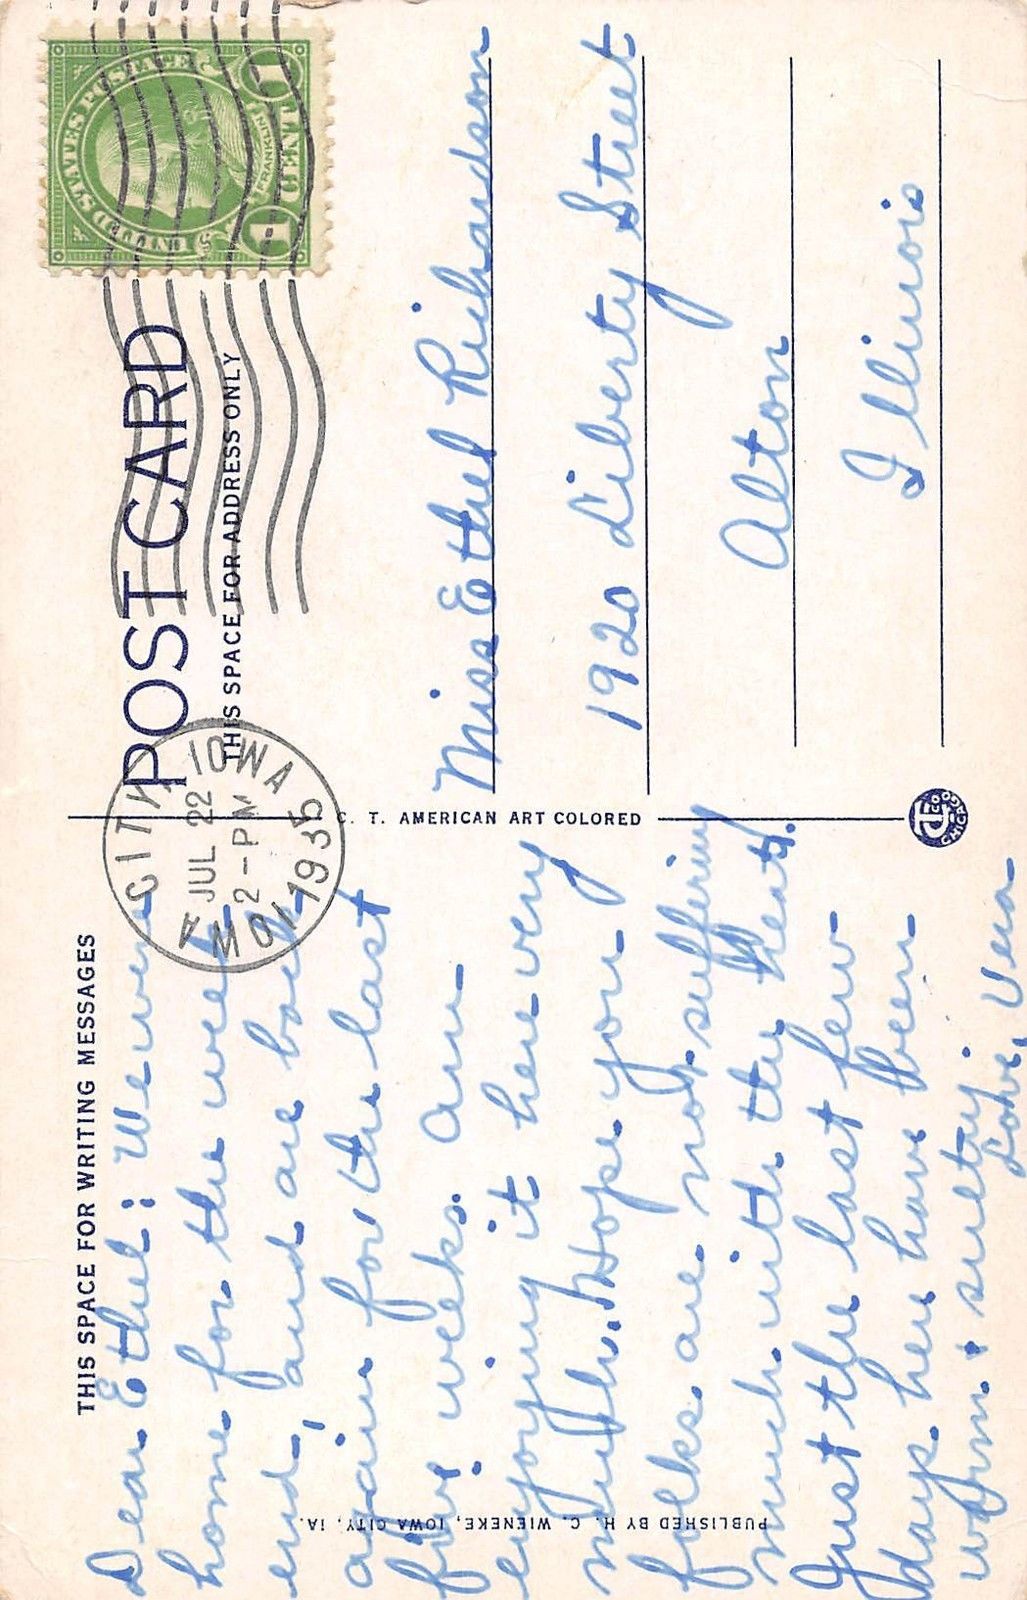 THIS SPACE FOR WRITING MESSAGES
Dear Ethel: We were
home for the week
end, and are back
again for the last
five weeks. Am
enjoying it here very
much. Hope you
folks are not suffering
much with the heat.
Just the last few
days here have been
warm & sultry.
Love, Vera
PUBLISHED BY H. C. WIENEKE, IOWA CITY, IA.
C. T. AMERICAN ART COLORED
POST CARD
THIS SPACE FOR ADDRESS ONLY
IOWA CITY, IOWA
JUL 22
2-PM
1935
IOWA
UNITED STATES POSTAGE
FRANKLIN
1 CENT 1
Miss Ethel Richardson
1920 Liberty Street
Alton
Illinois
CHICAGO